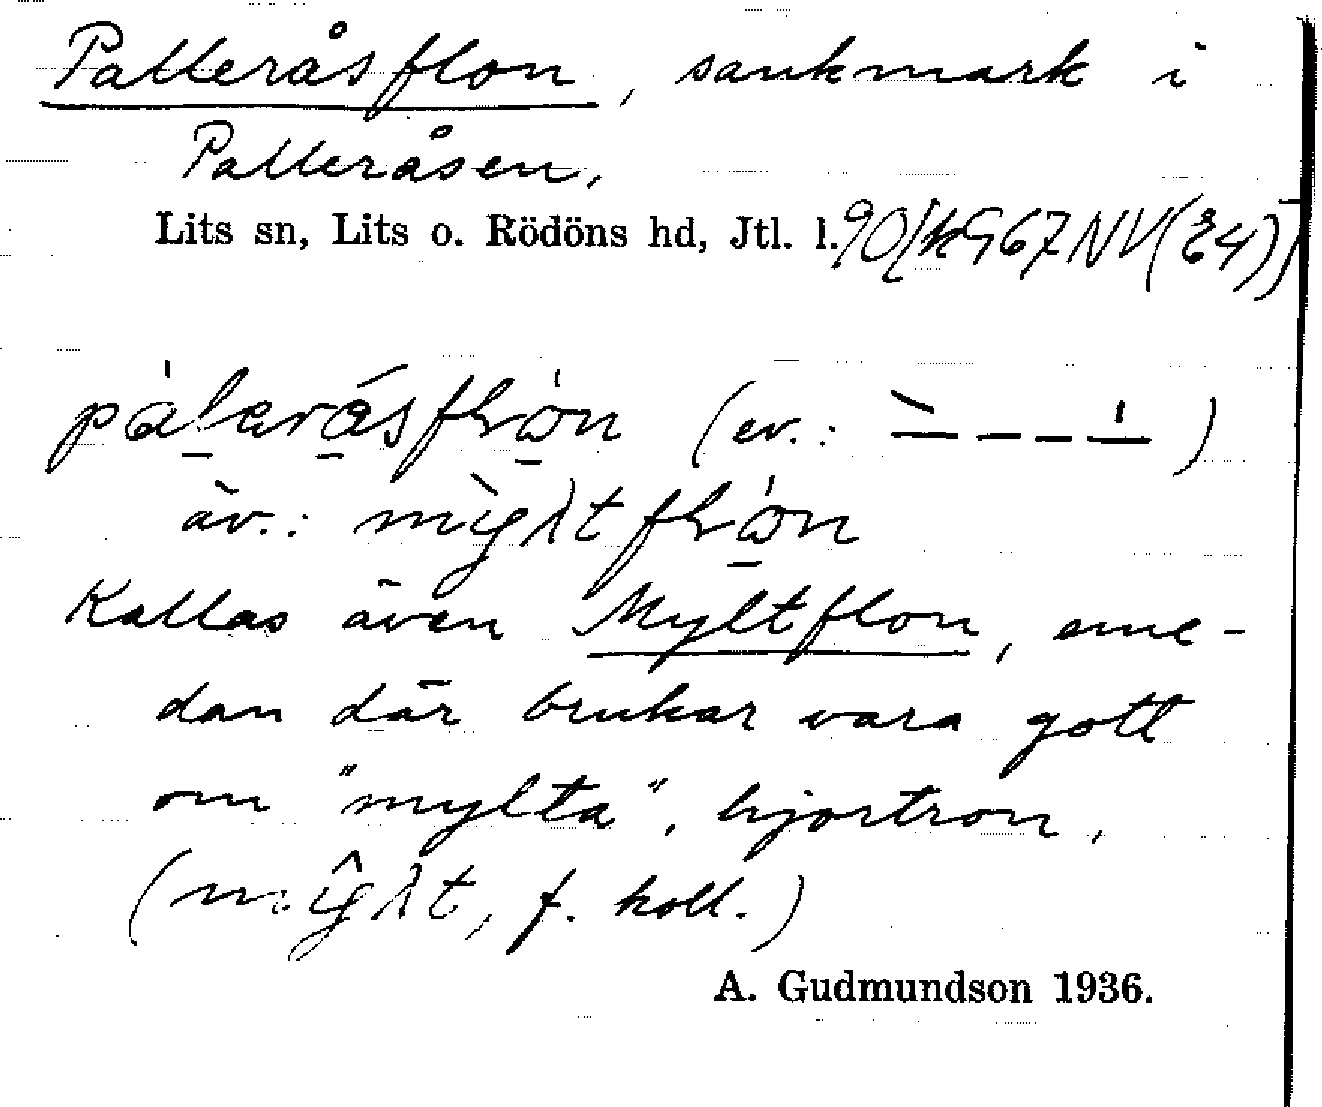 Palleråsflon, sankmark i
Palleråsen.
Lits sn, Lits o. Rödöns hd, Jtl. l.
(ev.:
äv.:
Kallas även Myltflon, eme-
dan där brukar vara gott
om "mylta", hjortron,
f. koll.)
A. Gudmundson 1936.